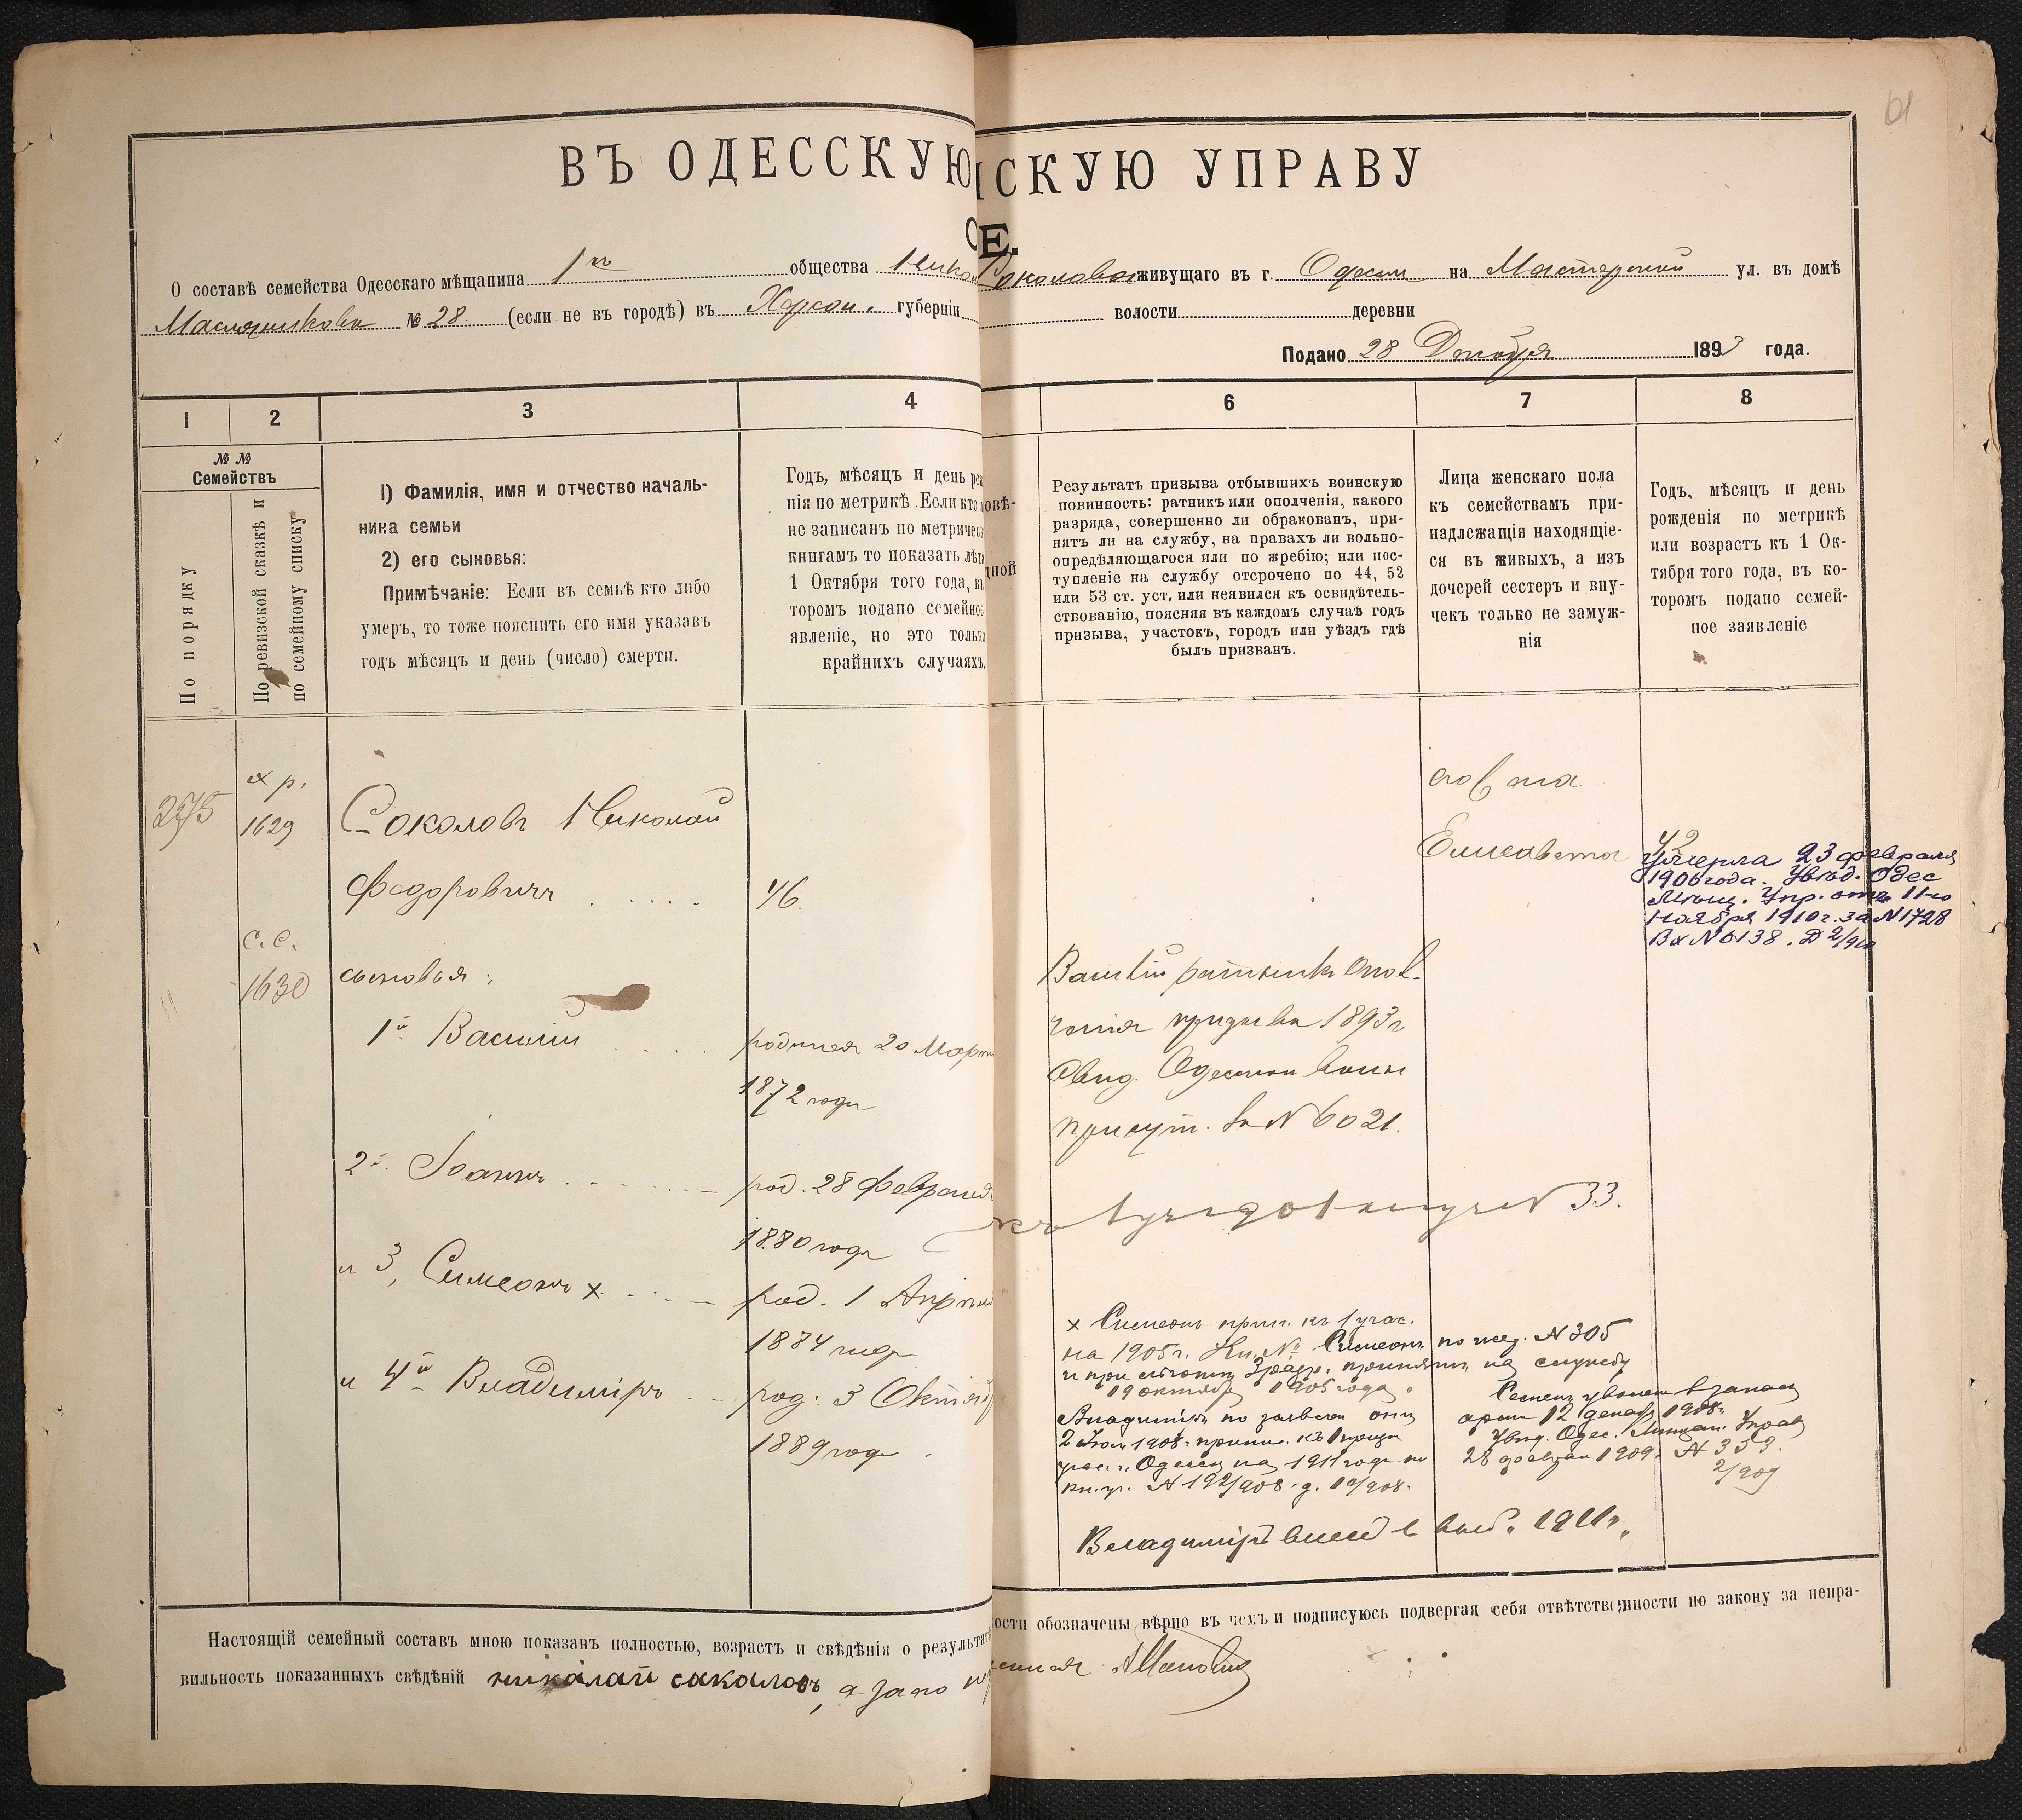 61
ВЪ ОДЕССКУЮ
СКУЮ УПРАВУ
Е.
О составѣ семейства Одесскаго мѣщанина 1го общества Никол Соколова живущаго въ г. Одессы на Мастерской ул. въ домѣ
Масляникова № 28 (если не въ городѣ) въ Херсон. губерніи волости деревни
Подано 28 Декабря 1893 года.
1 2 3 4 6 7 8
№ №
Семействъ
По порядку
По ревизской сказкѣ и
по семейному списку
1) Фамилія, имя и отчество началь-
ника семьи
2) его сыновья:
Примѣчаніе: Если въ семьѣ кто либо
умеръ, то тоже пояснить его имя указавъ
годъ мѣсяцъ и день (число) смерти.
Годъ, мѣсяцъ и день рож
нія по метрикѣ. Если кто
не записанъ по метричес
книгамъ то показать лѣта
1 Октября того года, въ
торомъ подано семейное
явленіе, но это только
крайнихъ случаяхъ.
овѣ-
дной
Результатъ призыва отбывшихъ воинскую
повинность: ратникъ или ополченія, какого
разряда, совершенно ли обракованъ, при-
нятъ ли на службу, на правахъ ли вольно-
опредѣляющагося или по жребію; или пос-
тупленіе на службу отсрочено по 44, 52
или 53 ст. уст, или неявился къ освидѣтель-
ствованію, поясняя въ каждомъ случаѣ годъ
призыва, участокъ, городъ или уѣздъ гдѣ
былъ призванъ.
Лица женскаго пола
къ семействамъ при-
надлежащія находящіе-
ся въ живыхъ, а изъ
дочерей сестеръ и вну-
чекъ только не замуж-
нія
Годъ, мѣсяцъ и день
рожденія по метрикѣ
или возрастъ къ 1 Ок-
тября того года, въ ко-
торомъ подано семей-
ное заявленіе
275
х р.
1629
Соколовъ Николай
Федоровичъ 46
с. с.
1630
сыновья:
1й Василій родился 20 Марта
1872 года
2й Іоаннъ род. 28 Февраля
1880 года
и 3, Симеонъ х род. 1 Апрѣля
1884 года
и 4й Владиміръ род. 3 Октяб
1889 года
Василій ратникъ Опол-
ченія призыва 1893 г
Свид. Одесскои воин
присут. за N 6021.
N 33.
х Симеонъ прип. къ 1 учас.
на 1905 г. Кн. № Симеонъ по жер. N 305
принятъ на службу
19 октября 1905 года.
Владиміръ по заявлен
2 Іюл 1908 г. припис. къ 1 призы
учас. г. Одессы на 1911 годъ по
кн. уч. N 192/908. д. 19/908.
Семенъ уволенъ въ запасъ
арміи 12 декабр 1908 г.
Увѣд. Одес. Мѣщан. Управ
28 феврал 1909 г. N 353.
2/909
Владиміръ внесенъ в 1911 г.
Елисавета 42
Умерла 23 февраля
1906 года. Увѣд. Одес
Мѣщ. Упр. отъ 11-го
Ноября 1910 г. за N 1728
Вх N 6138. Д 2/910
Настоящій семейный составъ мною показанъ полностью, возрастъ и свѣдѣнія о результат
ости обозначены вѣрно въ чемъ и подписуюсь подвергая себя отвѣтственности по закону за непра-
вильность показанныхъ свѣдѣній николай саколовъ,